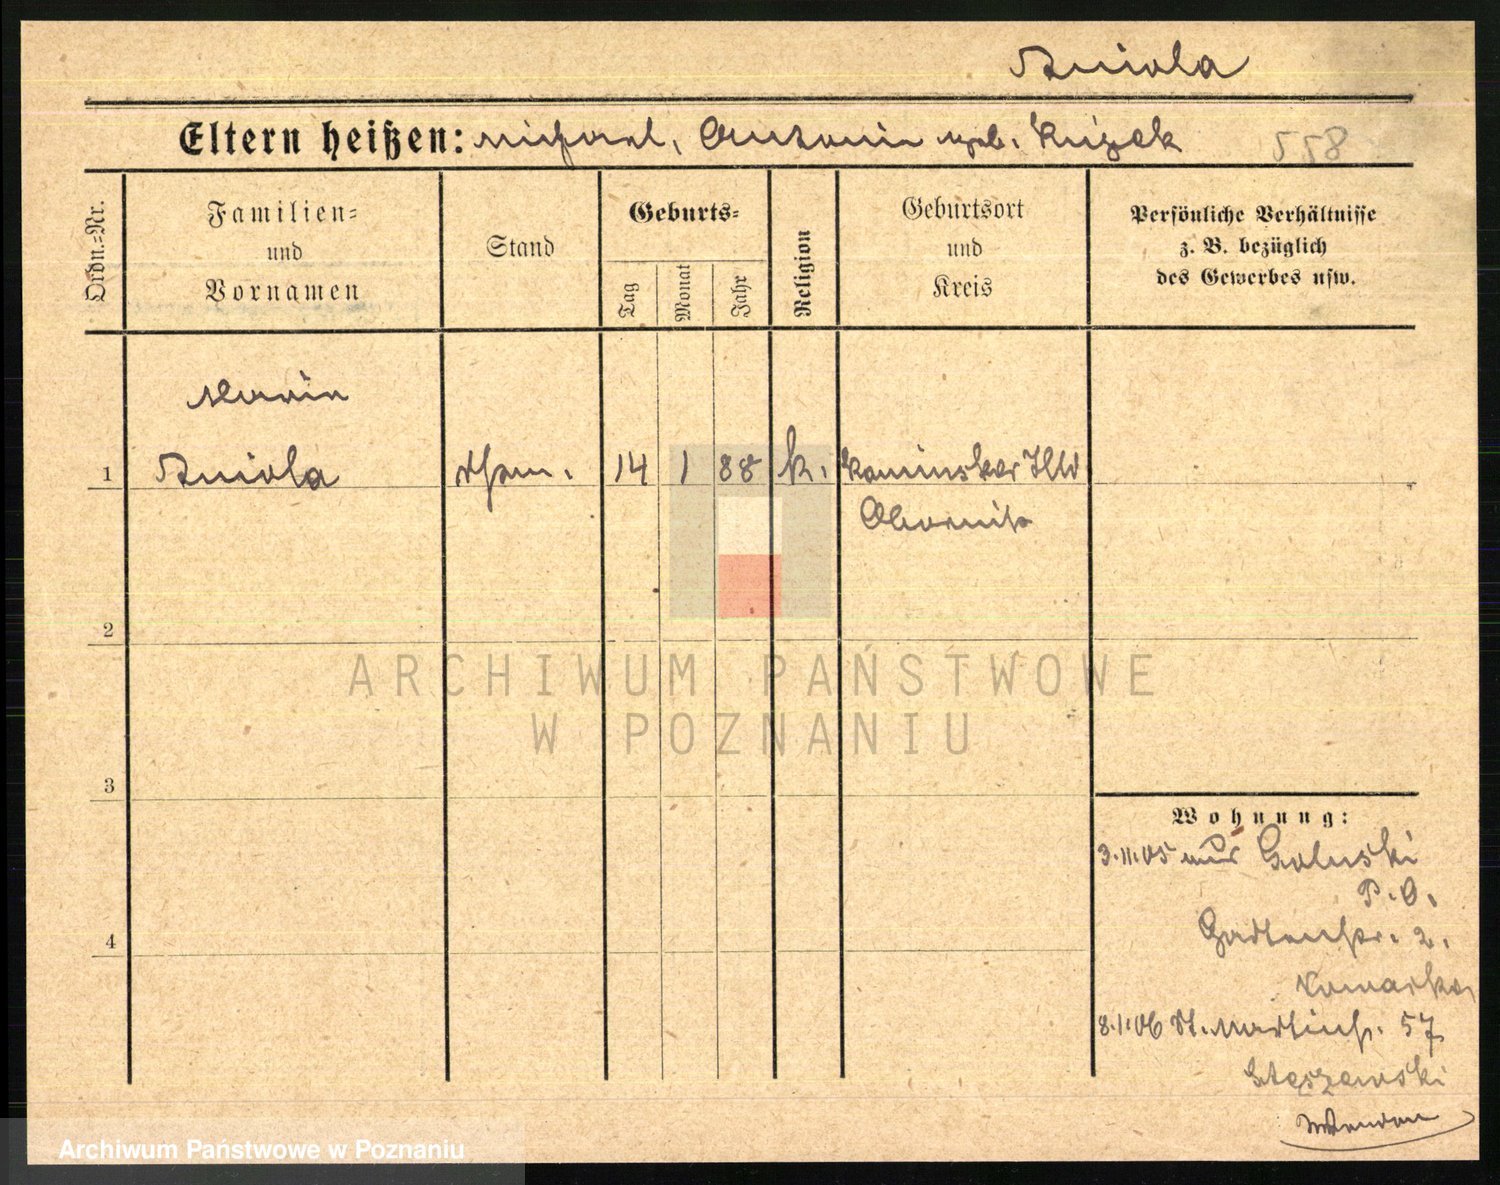 Aniola
Eltern heißen: Michael, Antonie geb. Knizek
558
Ordn.=Nr.
Familien=
und
Vornamen
Stand
Geburts=
Tag
Monat
Jahr
Religion
Geburtsort
und
Kreis
Persönliche Verhältnisse
z. B. bezüglich
des Gewerbes usw.
Maria
1 Aniola 14 1 88 k. Kaminsker Hld
Obornik
2
ARCHIWUM PAŃSTWOWE
W POZNANIU
3
Wohnung:
3.11.05 Goluski
P. O.
4
Gartenstr. 2.
8.1.06 St. Martinstr. 57
Stęszewski
Archiwum Państwowe w Poznaniu